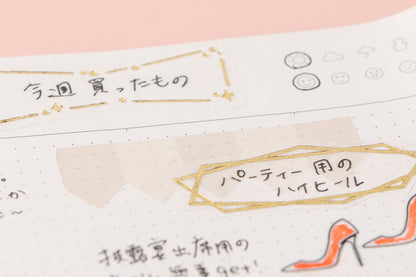 今週 買ったもの
パーティー用の
ハイヒール
か
〜
披露宴出席用の
get!